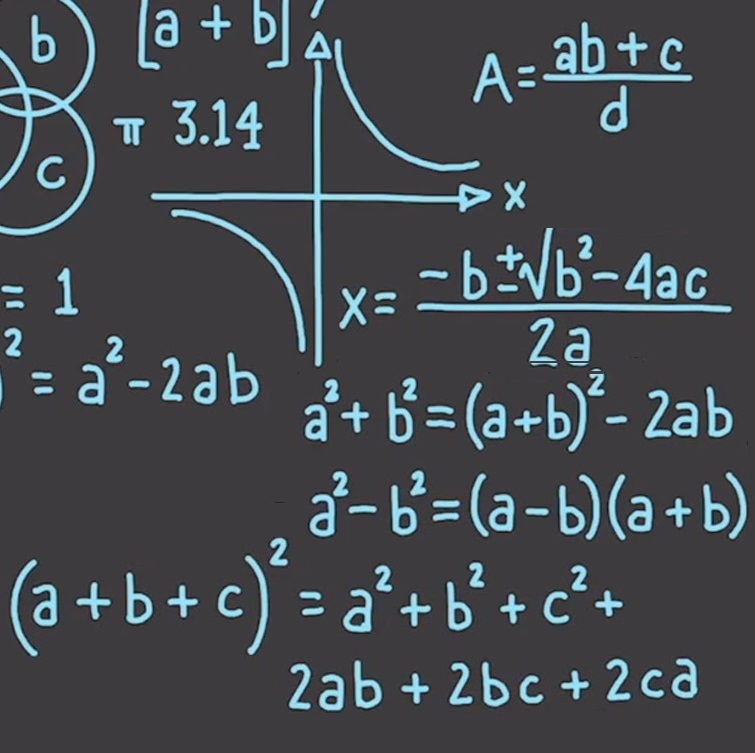 b
[a + b]
A = (ab + c)/d
π 3.14
c
x
= 1
x = (-b ± √b² - 4ac)/2a
)² = a² - 2ab
a² + b² = (a+b)² - 2ab
a² - b² = (a-b)(a+b)
(a + b + c)² = a² + b² + c² +
2ab + 2bc + 2ca